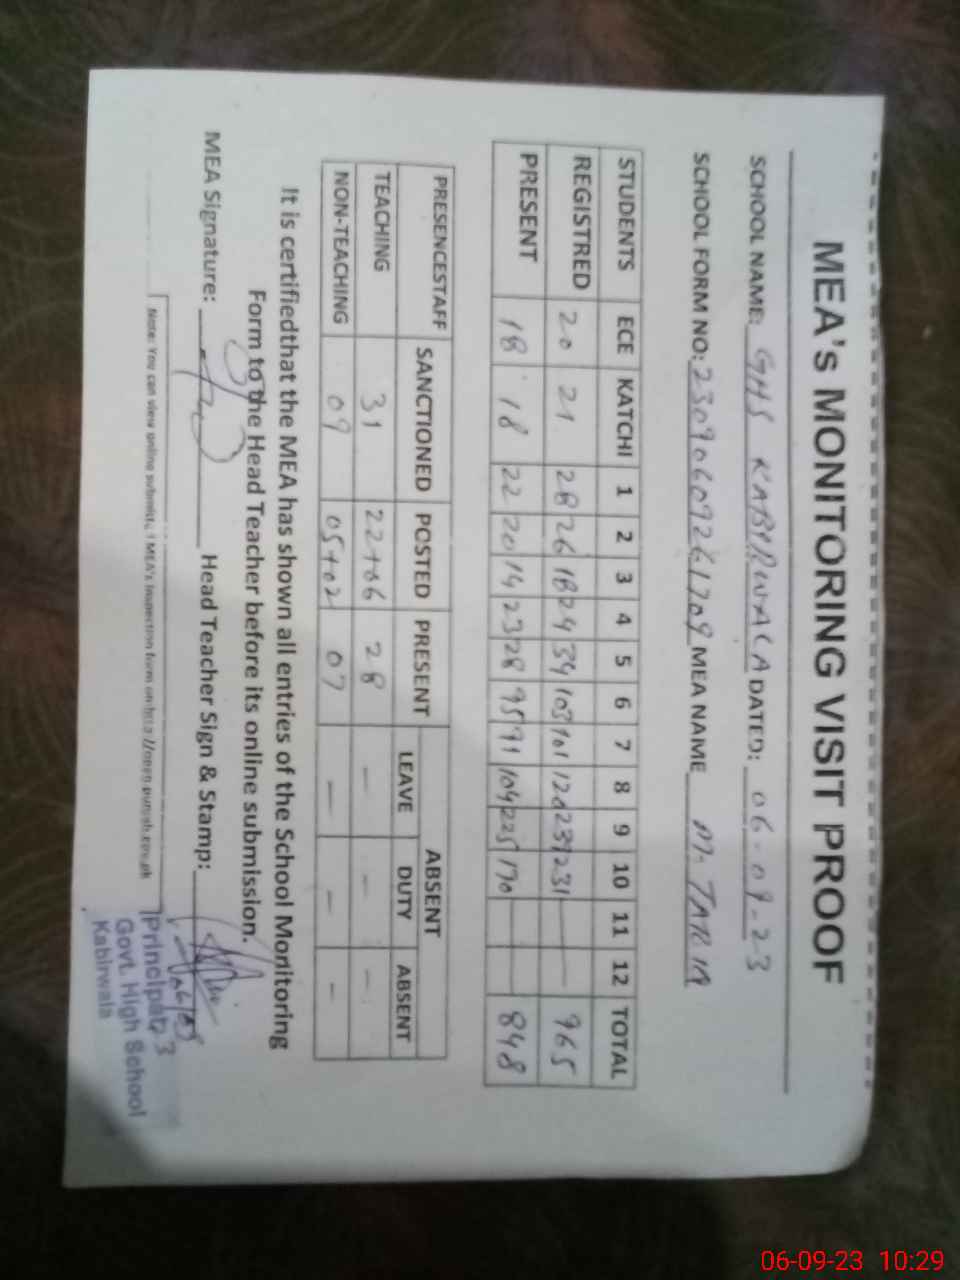 MEA's MONITORING VISIT PROOF
SCHOOL NAME: GHS KABIRWALA DATED: 06-09-23
SCHOOL FORM NO: 23090609261709 MEA NAME M. TARIQ
STUDENTS ECE KATCHI 1 2 3 4 5 6 7 8 9 10 11 12 TOTAL
REGISTRED 20 21 28 26 18 24 39 103 101 120 234 231 — — 965
PRESENT 18 18 22 20 14 23 28 95 91 104 225 190 848
PRESENCESTAFF SANCTIONED POSTED PRESENT ABSENT
LEAVE DUTY ABSENT
TEACHING 31 22+06 28 — — —
NON-TEACHING 09 05+02 07 — — —
It is certifiedthat the MEA has shown all entries of the School Monitoring
Form to the Head Teacher before its online submission.
MEA Signature: Head Teacher Sign & Stamp:
Principal
Govt. High School
Kabirwala
Note: You can view online submitted MEA's Inspection form on http://open.punjab.gov.pk
06-09-23 10:29